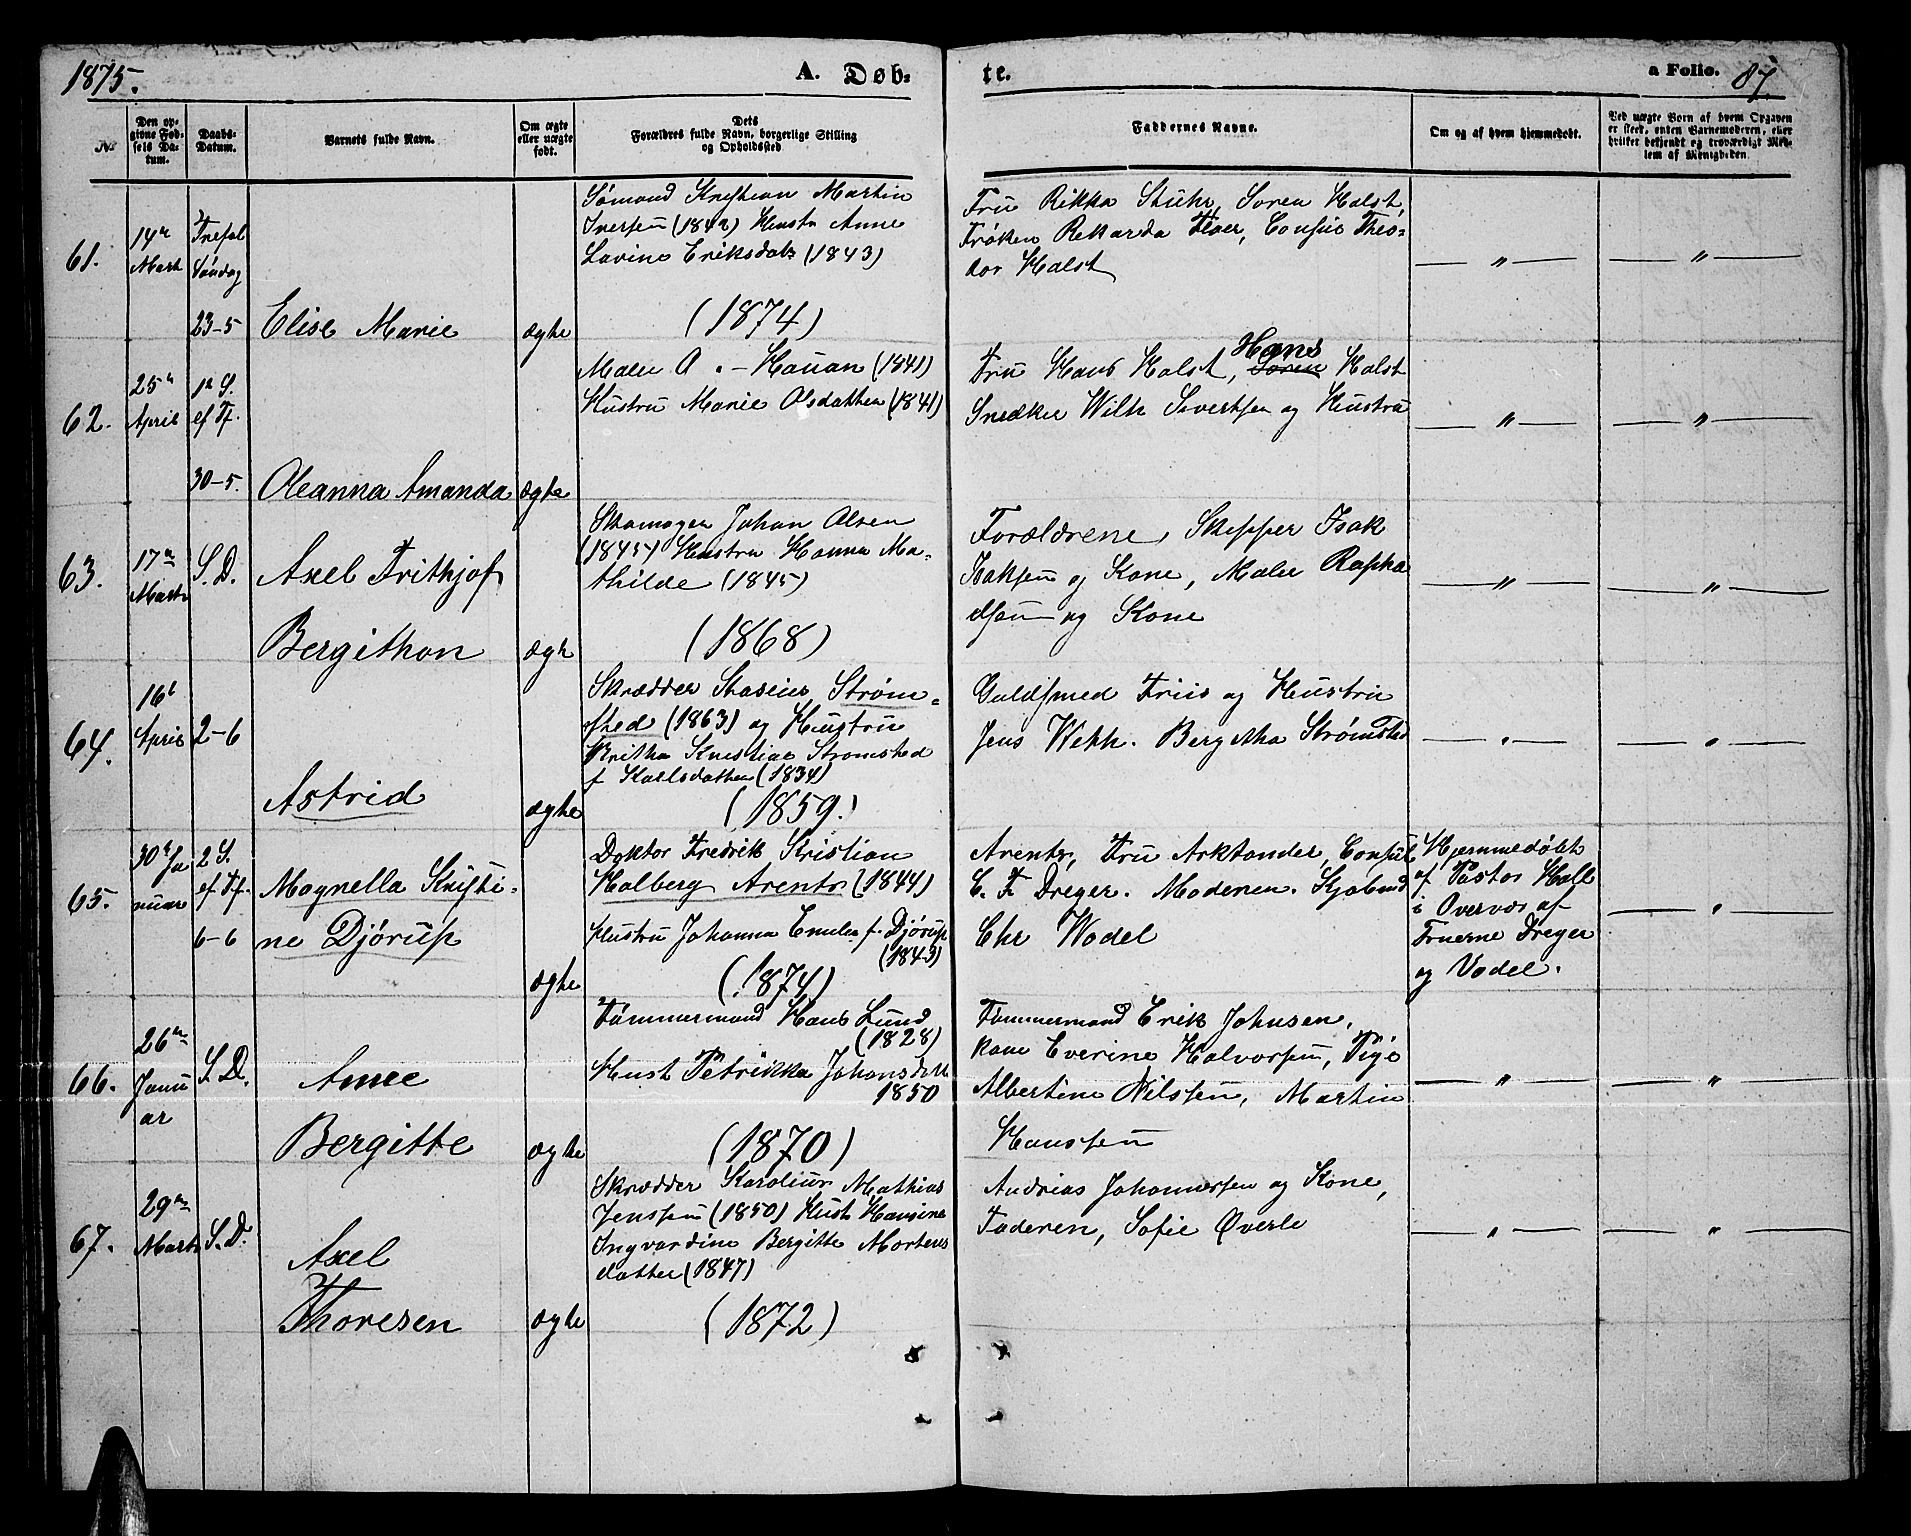 1875.
A. Døb=
te.
a Folio.
87.
No
Den op-
givne Fød-
sels Da-
tum.
Daabs-
Datum.
Barnets fulde Navn.
Om ægte
eller uægte
født.
Dets
Forældres fulde Navn, borgerlige Stilling
og Opholdssted
Faddernes Navne.
Om og af hvem hjemmedøbt.
Ved uægte Børn af hvem Opgaven
er skeet, enten Barnemoderen, eller
hvilket bekjendt og troværdigt Med-
lem af Menigheden.
61.
14de
Marts
Trefol
Søndag
23-5
Elise Marie
ægte
Sømand Kristian Martin
Iversen (1842) Hustr Anne
Lavine Eriksdatr (1843)
(1874)
Fru Rikka Stuhr, Soren Holst,
Frøken Rekarda Floer, Consul Theo-
dor Holst
— " —
— " —
62.
25de
April
1ste S.
ef Tf.
30-5.
Oleanna Amanda
ægte
Maler O. - Hauan (1841)
Hustru Marie Olsdatter (1841)
Hans
Fru Hans Holst, Soren Holst
Snedker Wilh Sivertsen og Hustru
— " —
— " —
63.
17de
Marts
S. D.
Axel Frithjof
Bergithon
ægte
Skomager Johan Olsen
(1845) Hustru Hanna Ma-
thilde (1845)
(1868)
Forældrene, Skipper Isak
Isaksen og Kone, Maler Rapha
elsen og Kone
— " —
— " —
64.
16de
April
2-6
Astrid
ægte
Skrædder Stasius Strøm-
sted (1863) og Hustru
Britha Kristine Stromsted
f Karlsdatter (1834)
(1859.)
Guldsmed Friis og Hustru
Jens Wekh. Bergitha Strømsted
— " —
— " —
65.
30de Ja
nuar
2 S.
ef Tf.
6-6
Magnella Kristi-
ne Djørup
ægte
Doktor Fredrik Kristian
Halberg Arentz (1844)
Hustru Johanna Emilie f. Djørup
(1843)
(1874)
Arentz, Fru Arktander, Consul
C. F. Dreger. Moderen. Skjelund
Chr Wodel
Hjemmedøbt
af Pastor Hall
i Overvær af
Fruerne Dreger
og Vadel.
— " —
66.
26de
Janu
ar
S. D.
Anne
Bergitte
ægte
Tømmermand Hans Lund
(1828)
Hust Petrikka Johansdtt
1850
(1870)
Tømmermand Erik Johnsen,
kone Everine Halvorsen, Pige
Albertine Nilsen, Martin
Hanssen
— " —
— " —
67.
29de
Marts
S. D.
Axel
Thoresen
ægte
Skrædder Karolius Mathias
Jenssen (1850) Hust Hansine
Ingvardine Bergitte Mortens
datter (1847)
(1872)
Andrias Johannessen og Kone,
Faderen, Sofie Øverle
— " —
— " —